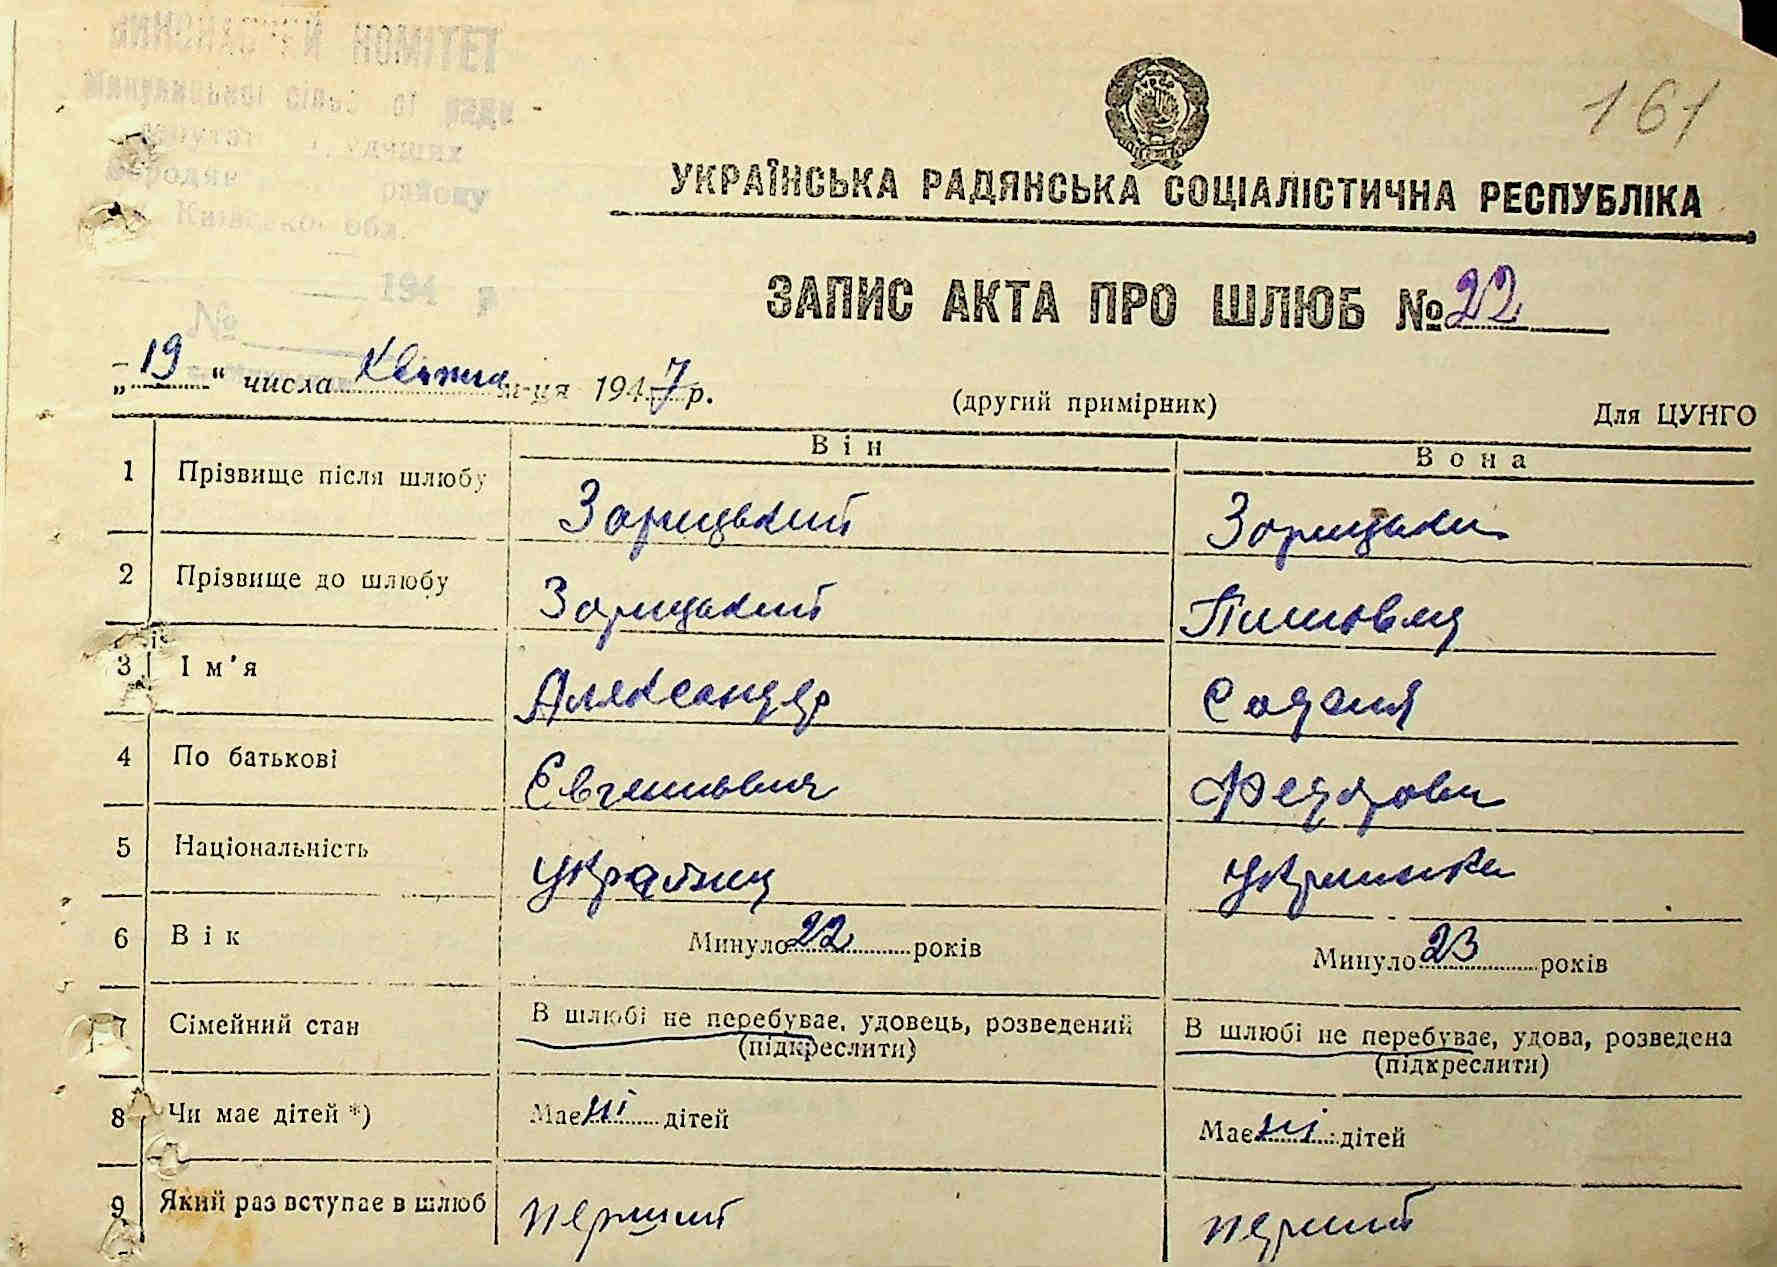 КОМІТЕТ
ради
району
Київської обл.
194 р
№
161
УКРАЇНСЬКА РАДЯНСЬКА СОЦІАЛІСТИЧНА РЕСПУБЛІКА
ЗАПИС АКТА ПРО ШЛЮБ № 22
„19“ числа Квітня м-ця 1947 р.
(другий примірник)
Для ЦУНГО
Він
Вона
1 Прізвище після шлюбу Зарицький Зарицька
2 Прізвище до шлюбу Зарицький
3 Ім'я Александр
4 По батькові Євгенович Федоровна
5 Національність Українец Українка
6 Вік Минуло 22 років Минуло 23 років
7 Сімейний стан В шлюбі не перебуває, удовець, розведений В шлюбі не перебуває, удова, розведена
(підкреслити) (підкреслити)
8 Чи має дітей *) Має ні дітей Має ні дітей
9 Який раз вступає в шлюб перший перший